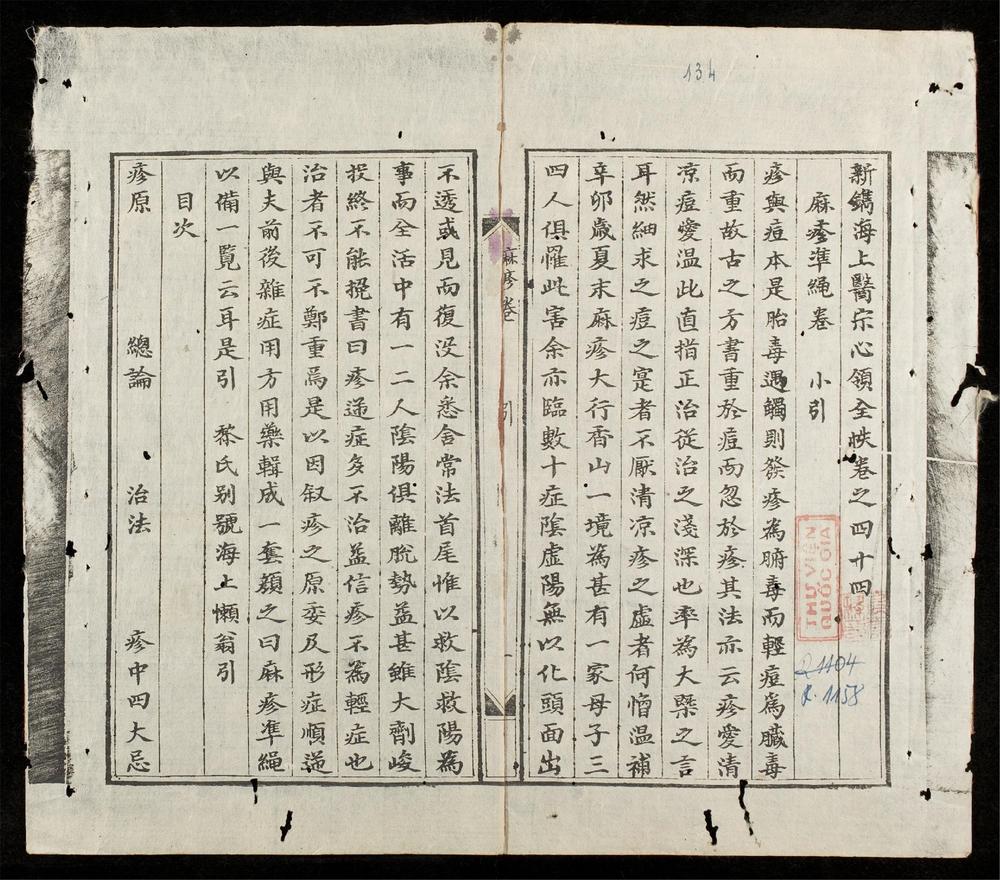 134
新鐫海上醫宗心領全帙卷之四十四
麻疹準繩卷 小引
疹與痘本是胎毒遇觸則發疹為腑毒而輕痘為臟毒
而重故古之方書重於痘而忽於疹其法亦云疹愛清
凉痘愛温此直指正治従治之淺深也率為大槩之言
耳然細求之痘之寔者不厭清凉疹之虛者何憎温補
辛卯歲夏末麻疹大行香山一境為甚有一家母子三
四人俱罹此害余亦臨數十症陰虛陽無以化頭面出
不透或見而復没余悉舍常法首尾惟以救陰救陽為
事而全活中有一二人陰陽俱離脫勢益甚雖大劑峻
投終不能挽書曰疹逆症多不治益信疹不為輕症也
治者不可不鄭重焉是以因叙疹之原委及形症順逆
與夫前後雜症用方用藥輯成一套顏之曰麻疹準繩
以備一覽云耳是引 黎氏别號海上懶翁引
目次
疹原 總論 治法 疹中四大忌
麻疹卷 引 一
THƯ VIỆN
QUỐC GIA
R.1104
R.1158